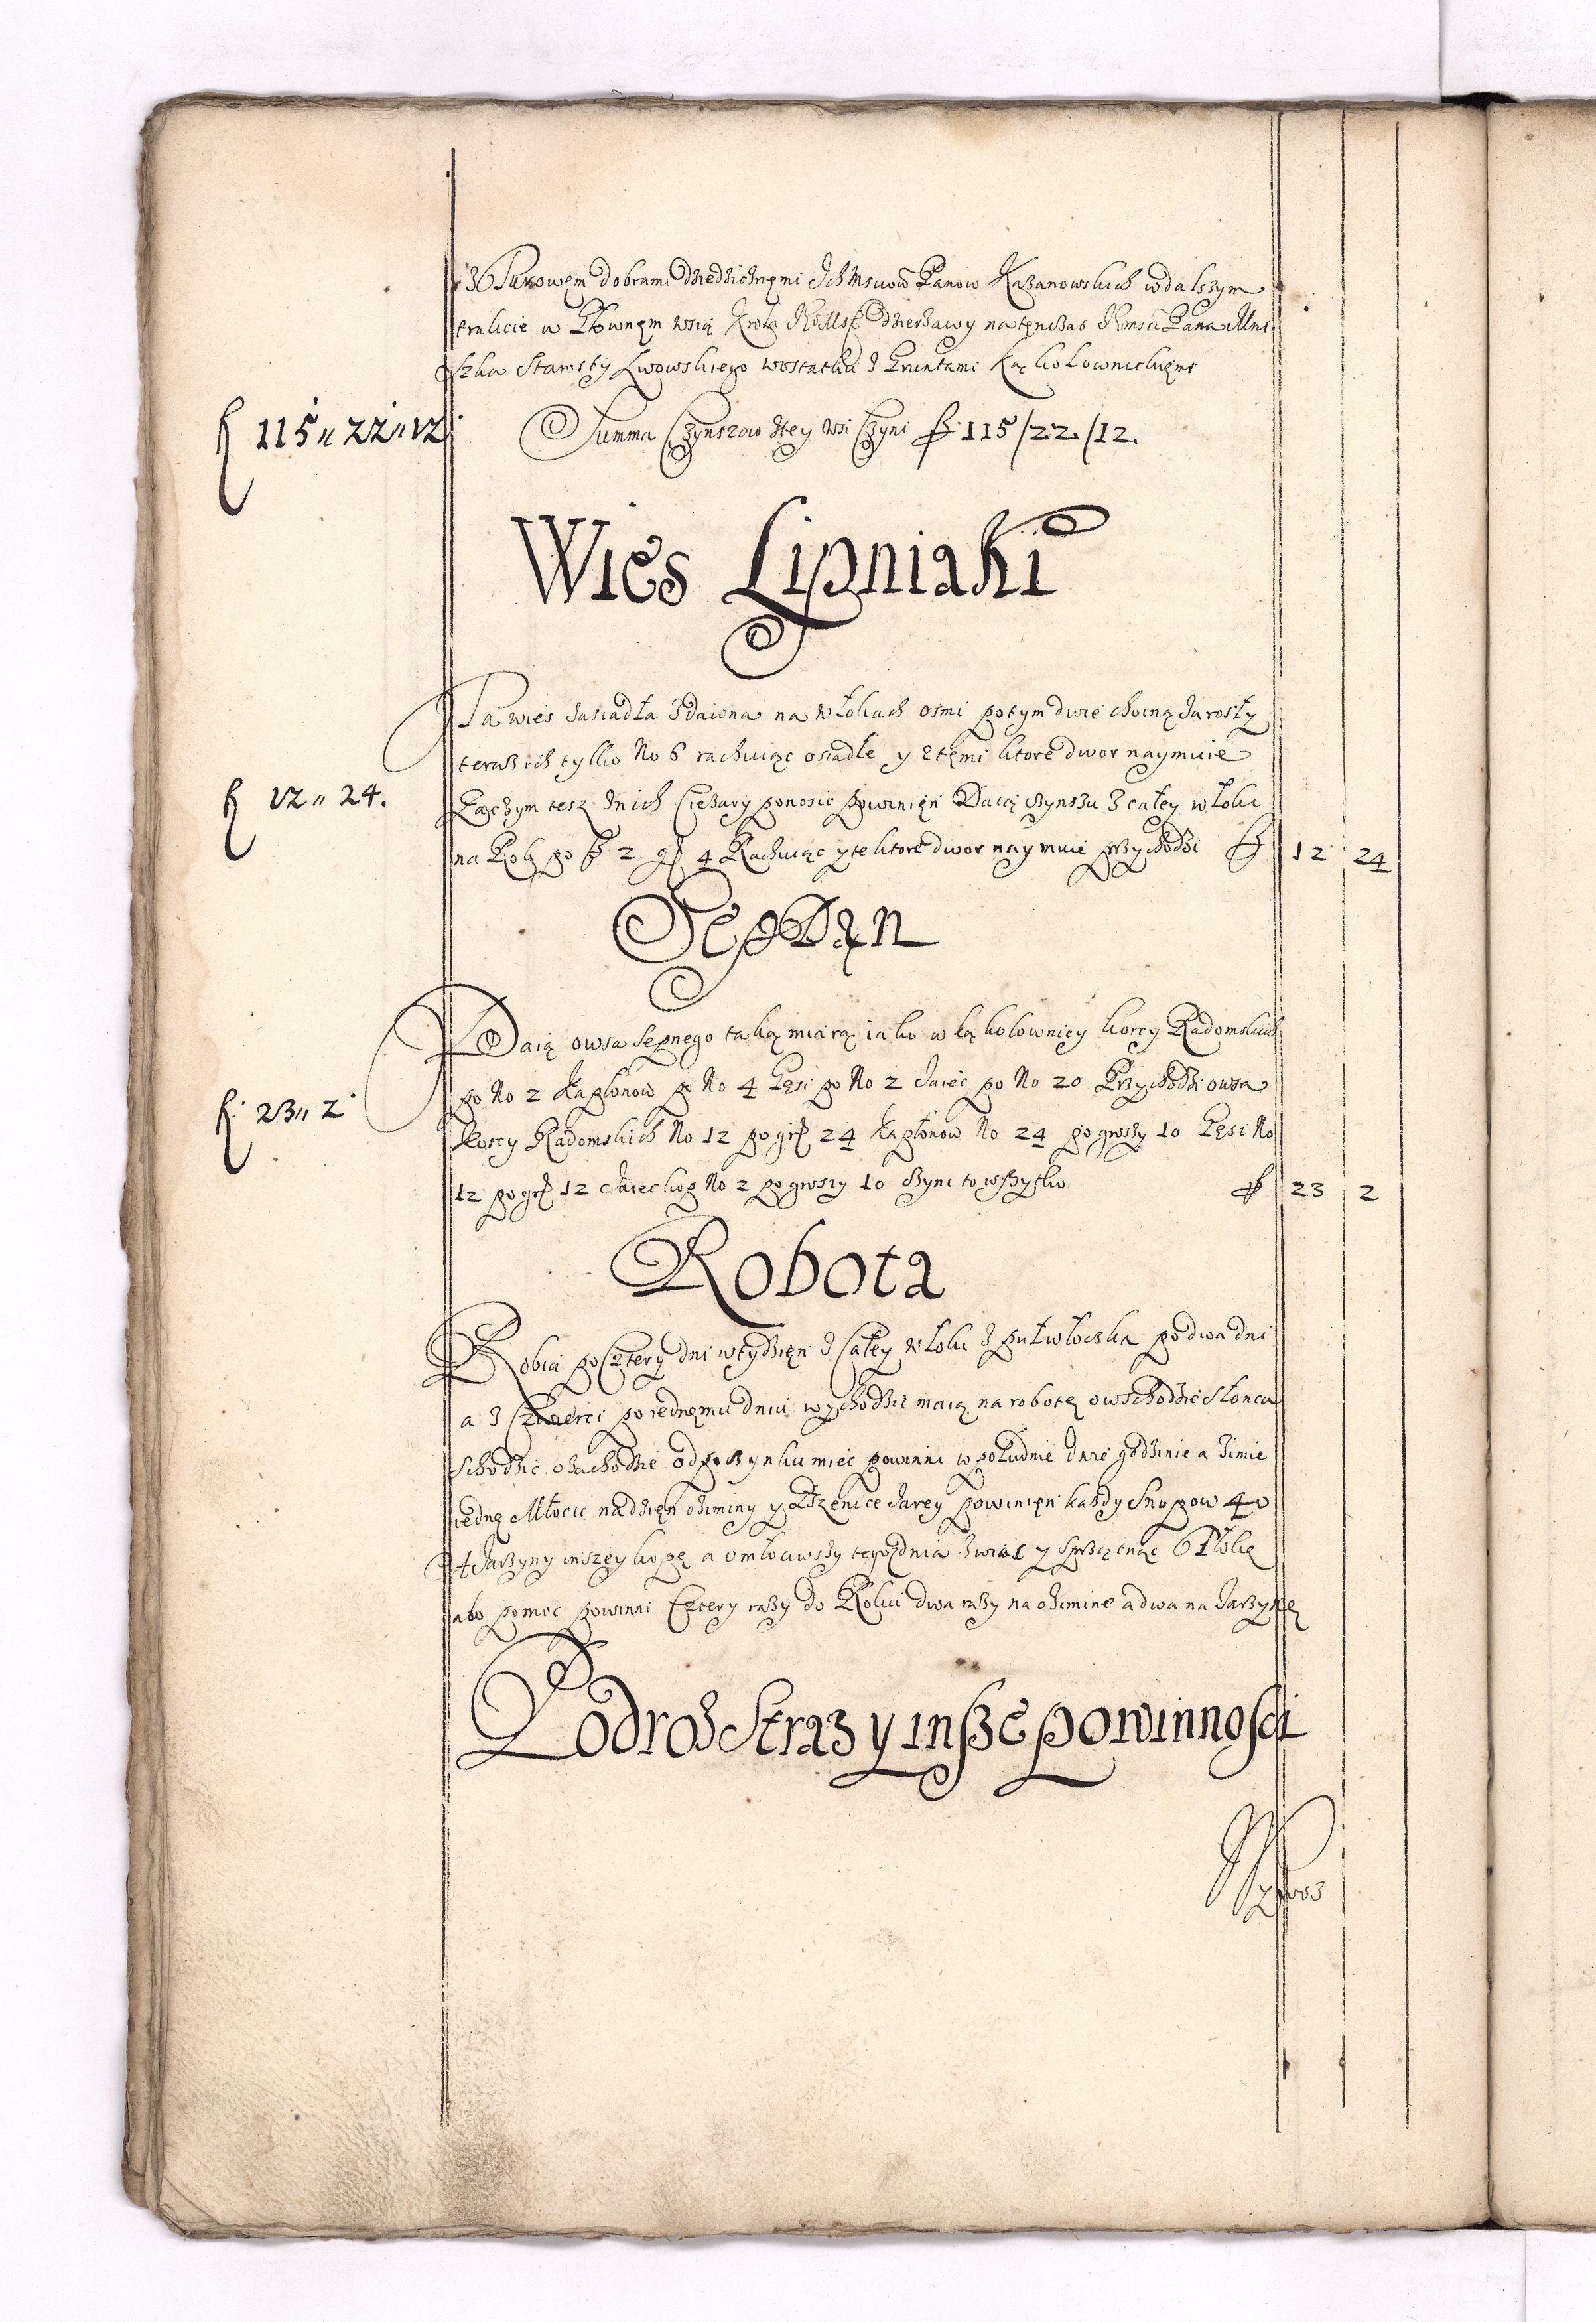 Zurowem dobrami dziedzicznemi Ich Msciow Panow Kazanowskich w dalszym
trakcie w Głownem wsią dzierzawy natenczas Pana Mni
szka Starosty Lwowskiego w ostatku z Gruntami Kąkolownickiemi
fl 115 // 22 // 12
Summa Czynszow z tey wsi Czyni fl 115/22/12.
Wies Lipniaki
Ta wies zasiadła zdawna na włokach osmi potym dwie choiną zarosły
teraz ich tylko No 6 rachuiąc osiadłe y z temi ktore dwor naymuie
fl 12 // 24.
Zaczym tesz z nich Ciezary ponosic powinien Daią czynszu z całey włoki
na Rok po fl 2 gr 4 Rachuiąc y te ktore dwor naymuie przychodzi fl 12 24
Sep Dan
Daią owsa sepnego taką miarą iako w Kąkolownicy korcy Radomskich
po No 2 Kapłonow po No 4 Gęsi po No 2 Jaiec po No 20 Przychodzi owsa
fl 23 // 2
Korcy Radomskich No 12 po gr 24 Kapłonow No 24 po groszy 10 Gęsi No
12 po gr 12 Jaiec kop No 2 po groszy 10 czyni to wszytko fl 23 2
Robota
Robią po Cztery dni w tydzien z Całey włoki z pułwłoczka po dwa dni
a z Czwierci po iednemu dniu wychodzic maią na robotę o wschodzie słonca
schodzic o zachodzie odpoczynku miec powinni w południe dwie godzinie a zimie
iednę Młocic na dzien oziminy y Pszenice Jarey powinien kazdy snopow 40
Jarzyny inszey kopę a omłociwszy tegoz dnia zwiac y sprzątnąc Tłokę
abo pomoc powinni Cztery razy do Roku dwa razy na ozimine a dwa na Jarzynę
Podroz Straz y insze powinnosci
Wywoz